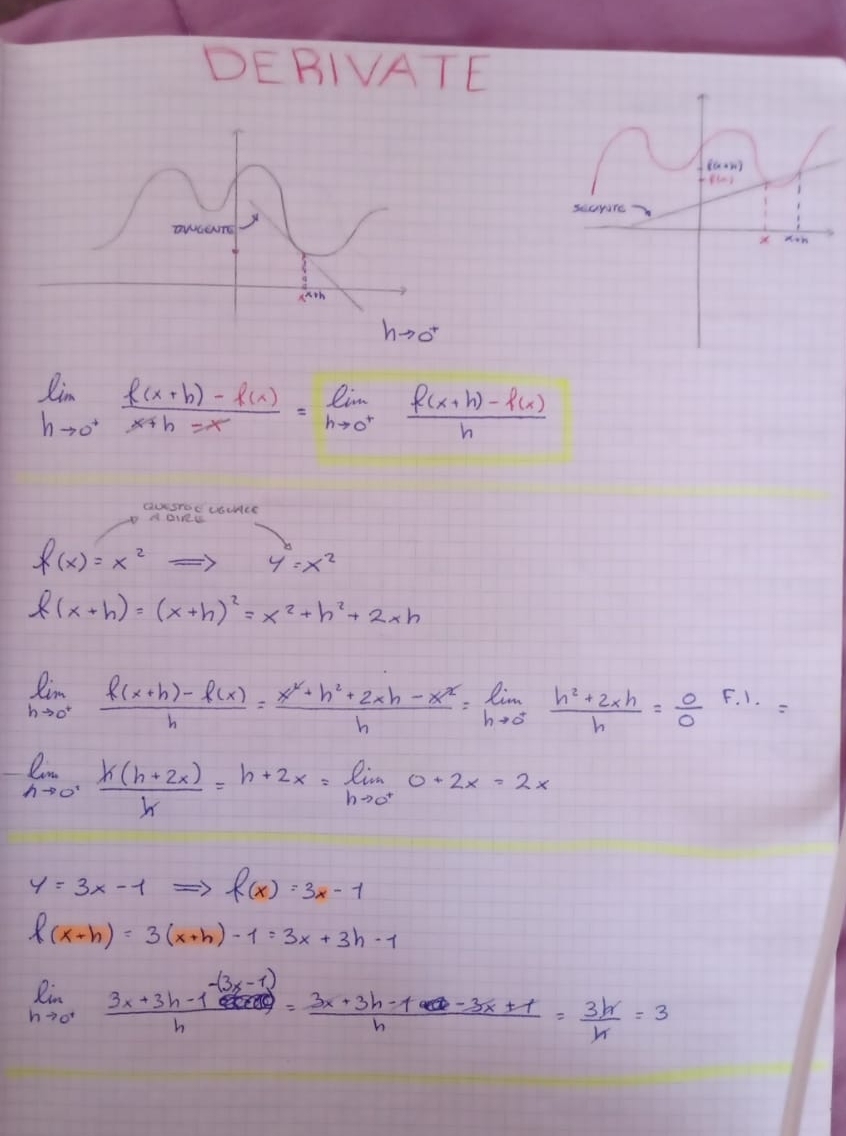 DERIVATE
TANGENTE
x x+h
h→0⁺
f(x+h)
f(x)
SECANTE
x x+h
lim h→0⁺ (f(x+h) - f(x))/(x+h - x) = lim h→0⁺ (f(x+h) - f(x))/h
QUESTO E UGUALE
A DIRE
f(x) = x² ⟹ y = x²
f(x+h) = (x+h)² = x² + h² + 2xh
lim h→0⁺ (f(x+h) - f(x))/h = (x² + h² + 2xh - x²)/h = lim h→0⁺ (h² + 2xh)/h = 0/0 F.I. =
lim h→0⁺ h(h+2x)/h = h + 2x = lim h→0⁺ 0 + 2x = 2x
y = 3x - 1 ⟹ f(x) = 3x - 1
f(x+h) = 3(x+h) - 1 = 3x + 3h - 1
lim h→0⁺ (3x + 3h - 1 -(3x-1))/h = (3x + 3h - 1 - 3x + 1)/h = 3h/h = 3